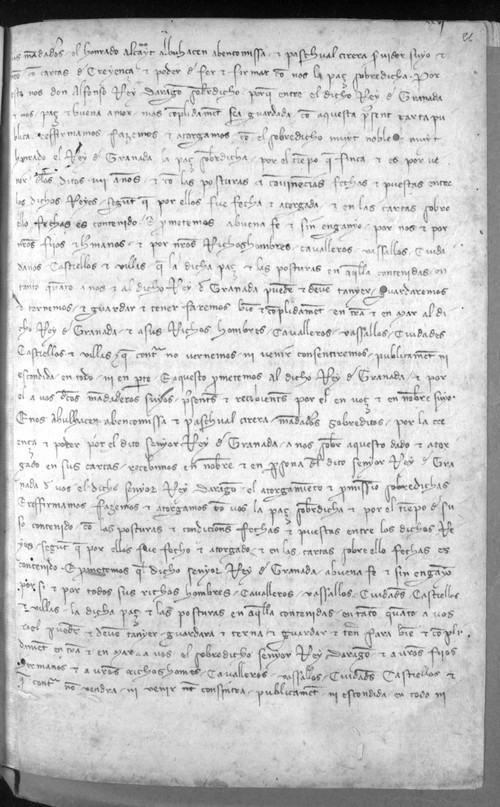 madados el honrado alcayt Abulhacen abencomissa . & paschual cirera . suidor suyo &
con cartas d Creyença & poder d fer & firmar con nos la paç sobredicha . Por
esto nos don Alfonso Rey Darago sobredicho . porq entre el dicho Rey d Granada
& nos paç & buena amor mas coplidamet sea guardada co aquesta psent carta pu
blica Reffirmamos fazemos & atorgamos co el sobredicho muyt noble & muyt
honrado el Rey d Granada la paç sobredicha . por el tiepo q finca & es por ve
nir dlos ditos anos . & co las posturas & covinecias fechas & puestas entre
los dichos Reyes . segut q por ellos fue fecha & atorgada . & en las cartas sobre
ello fechas es contenido . E pmetemos abuena fe & sin enganyo . por nos & por
nros fijos & hmanos & por nros Richos hombres . cavalleros . vassallos . Ciuda
danos Castiellos & villas q la dicha paç & las posturas en aqlla contenidas en
tanto quato a nos & al dicho Rey d Granada puede & deve tanyer . Guardaremos
& ternemos . & guardar & tener faremos bie & coplidamet en tra & en mar al di
cho Rey d Granada . & a sus Richos hombres . Cavalleros . vassallos . Ciudades
Castiellos & villas . q cont no vernemos ni venir consentiremos . publicamet ni
escondida en todo . ni en pte . E aquesto pmetemos al dicho Rey d Granada . & por
el a vos dtos madaderos suyos . psents & recibients por el en voç & en nobre suyo .
E nos abulhacen abencomissa & paschual cirera . madados sobreditos . por la cre
ença & poder por el dito senyor Rey d Granada . a nos sobr aquesto dado & ator
gado en sus cartas . recebimos en nobre & en psona dl dito senyor Rey d Gra
nada d vos el dicho senyor Rey Darago . el atorgamieto & pmissio sobredichas
E reffirmamos fazemos & atorgamos co vos la paç sobredicha & por el tiepo d su
so contenido . co las posturas & condicions fechas & puestas entre los dichos Re
yes segut q por ellos fue fecho & atorgado . & en las cartas sobre ello fechas es
contenido . E pmetemos q l dicho senyor Rey d Granada . abuena fe & sin enganyo
por si & por todos sus richos hombres . Cavalleros . vassallos . Ciudads Castiellos
& villas . la dicha paç & las posturas en aqlla contenidas en tato quato a vos
& a el puede & deve tanyer . guardara & terna & guardar & tener fara bie & copli
damet en tra & en mar . a vos el sobredicho senyor Rey Darago . & a vros fijos
& hermanos & a vros richos homes . Cavalleros . vassallos . Ciudads Castiellos &
q cont no vendra . ni venir consintra . publicamet ni escondida en todo ni